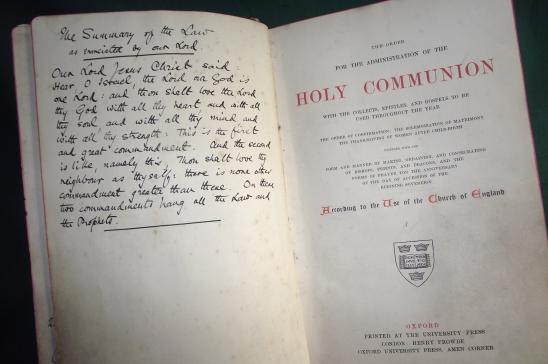 The Summary of the Law
as enunciated by our Lord.
Our Lord Jesus Christ said:
Hear, O Israel, the Lord our God is
one Lord: and thou shalt love the Lord
thy God with all thy heart, and with all
thy soul and with all thy mind and
with all thy strength: This is the first
and great commandment. And the second
is like, namely this, Thou shalt love thy
neighbour as thyself: there is none other
commandment greater than these. On these
two commandments hang all the Law and
the Prophets.
THE ORDER
FOR THE ADMINISTRATION OF THE
HOLY COMMUNION
WITH THE COLLECTS, EPISTLES, AND GOSPELS TO BE
USED THROUGHOUT THE YEAR
THE ORDER OF CONFIRMATION, THE SOLEMNIZATION OF MATRIMONY
THE THANKSGIVING OF WOMEN AFTER CHILD-BIRTH
TOGETHER WITH THE
FORM AND MANNER OF MAKING, ORDAINING, AND CONSECRATING
OF BISHOPS, PRIESTS, AND DEACONS, AND THE
FORMS OF PRAYER FOR THE ANNIVERSARY
OF THE DAY OF ACCESSION OF THE
REIGNING SOVEREIGN
According to the Use of the Church of England
OXFORD
PRINTED AT THE UNIVERSITY PRESS
LONDON: HENRY FROWDE
OXFORD UNIVERSITY PRESS, AMEN CORNER